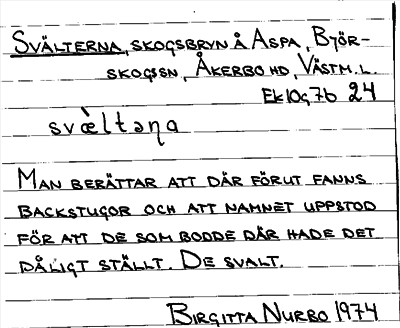 SVÄLTERNA, SKOGSBRYN Å ASPA, BJÖR-
SKOGSSN, ÅKERBO HD, VÄSTM. L.
EK 10g7b 24
svæ̀ltəṇa
MAN BERÄTTAR ATT DÄR FÖRUT FANNS
BACKSTUGOR OCH ATT NAMNET UPPSTOD
FÖR ATT DE SOM BODDE DÄR HADE DET
DÅLIGT STÄLLT. DE SVALT.
BIRGITTA NURBO 1974